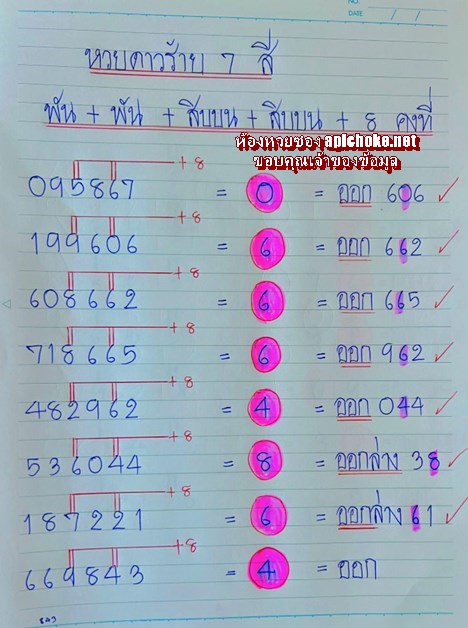 NO.
DATE / /
หวยดาวร้าย 7 สี
พัน + พัน + สิบบน + สิบบน + 8 คงที่
ห้องหวยซอง apichoke.net
ขอบคุณเจ้าของข้อมูล
+8
095867 = 0 = ออก 606 ✓
+8
199606 = 6 = ออก 662 ✓
+8
608662 = 6 = ออก 665 ✓
+8
718665 = 6 = ออก 962 ✓
+8
482962 = 4 = ออก 044 ✓
+8
536044 = 8 = ออกล่าง 38 ✓
+8
187221 = 6 = ออกล่าง 61 ✓
+8
669843 = 4 = ออก